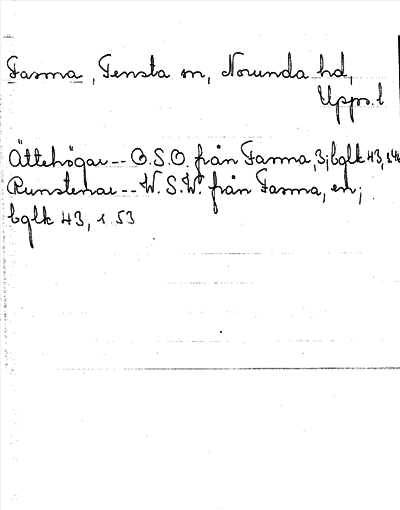 Fasma, Tensta sn, Norunda hd,
Upps. l
Ättehögar -- O.S.O. från Fasma, 3; bglk 43, s 46
Runstenar -- W.S.W. från Fasma, en;
bglk 43, s 53